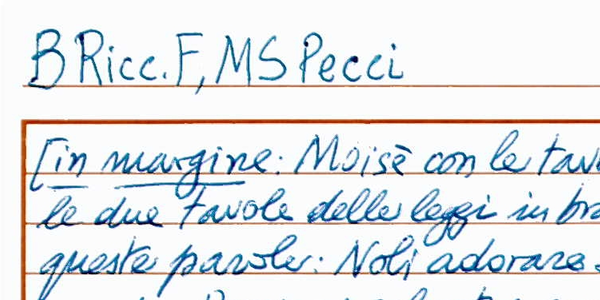 B Ricc. F, MS Pecci
[in margine: Moisè con le tav
le due tavole delle leggi in bra
queste parole: Noli adorare